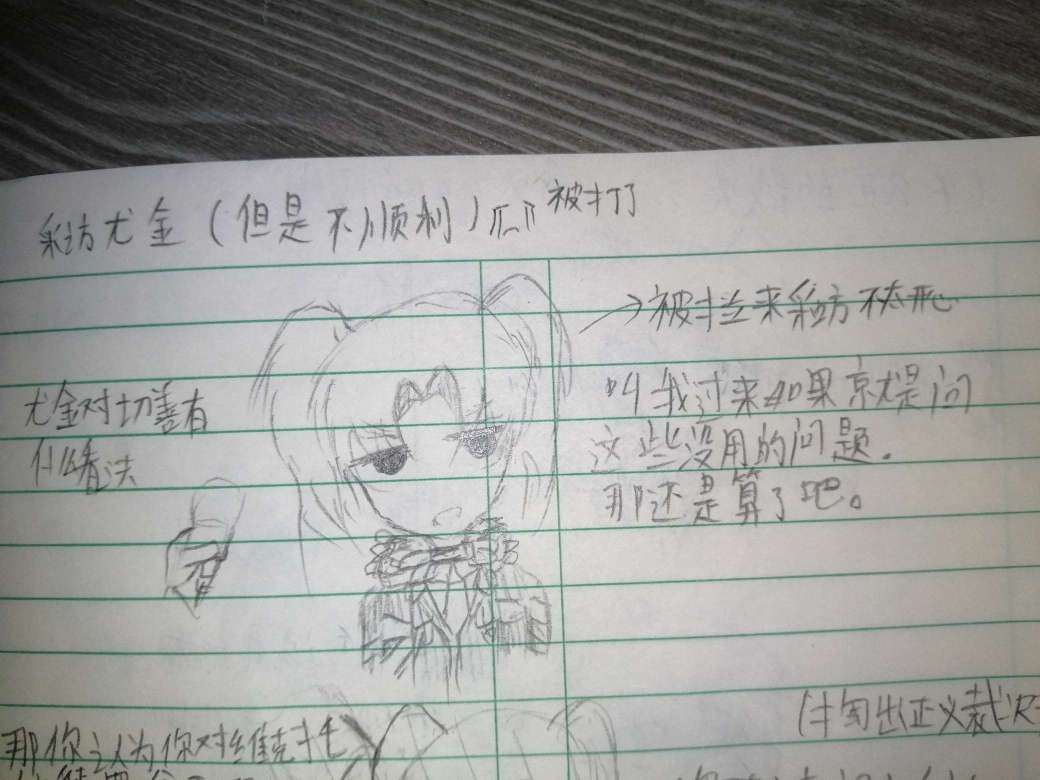 彩访尤金(但是不顺利) 被打了
→被拦来彩访不太开心
尤金对切善有
什么看法
叫我过来如果京尤是问
这些没用的问题.
那还是算了吧。
(掏出正义裁决
那你认为你对维克托